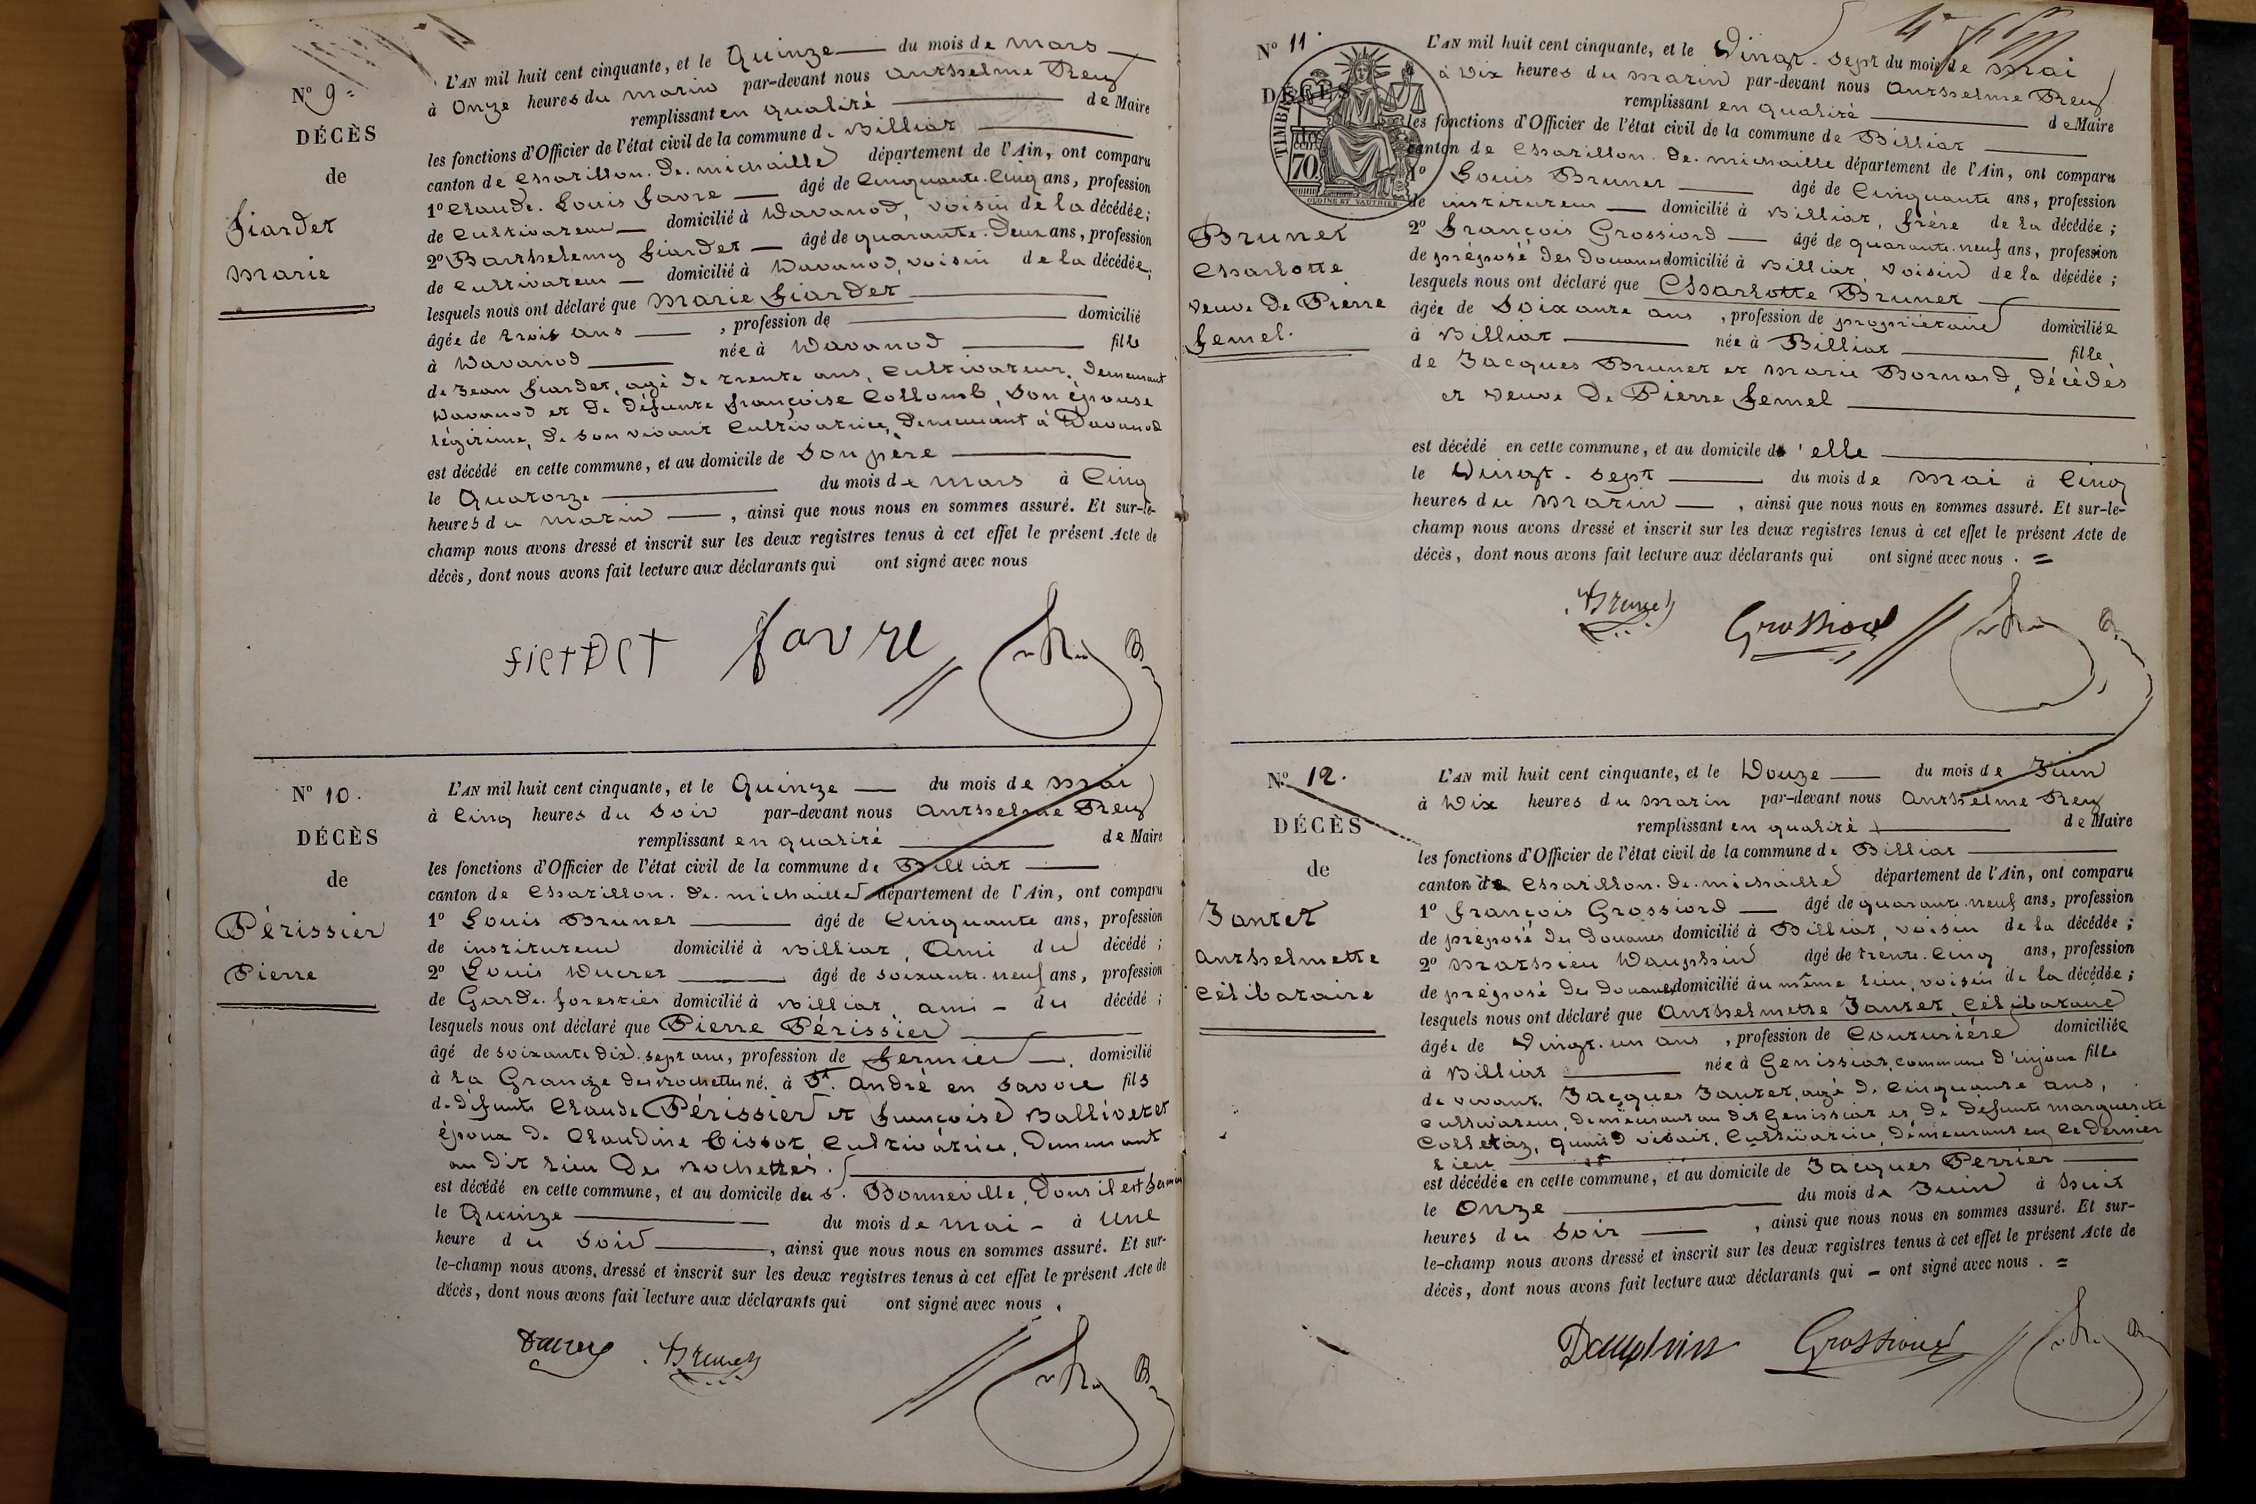 N° 9
DÉCÈS
de
fiardet
marie
L'AN mil huit cent cinquante, et le Quinze du mois de mars
à Onze heures du matin par-devant nous anthelme Rey
remplissant en qualité de Maire
les fonctions d'Officier de l'état civil de la commune de Billiat
canton de Chatillon. de. michaille département de l'Ain, ont comparu
1° Claude. Louis favre âgé de Cinquante. Cinq ans, profession
de Cultivateur domicilié à Davanod, voisin de la décédée;
2° Barthelemy fiardet âgé de quarante. Deux ans, profession
de Cultivateur domicilié à Davanod, voisin de la décédée,
lesquels nous ont déclaré que Marie fiardet
âgée de trois ans, profession de domicilié
à Davanod née à Davanod fille
de Jean fiardet, agé de trente ans, Cultivateur. demeurant
Davanod et de défunte françoise Collomb, son épouse
légitime, de son vivant Cultivatrice, demeurant à Davanod
est décédé en cette commune, et au domicile de son père
le Quatorze du mois de mars à Cinq
heures du matin, ainsi que nous nous en sommes assuré. Et sur-le-
champ nous avons dressé et inscrit sur les deux registres tenus à cet effet le présent Acte de
décès, dont nous avons fait lecture aux déclarants qui ont signé avec nous
fierdet favre
N° 10.
DÉCÈS
de
Périssier
Pierre
L'AN mil huit cent cinquante, et le Quinze du mois de Mai
à Cinq heures du soir par-devant nous Anthelme Rey
remplissant en qualité de Maire
les fonctions d'Officier de l'état civil de la commune de Billiat
canton de Chatillon. de. michaille département de l'Ain, ont comparu
1° Louis Brunet âgé de Cinquante ans, profession
de instituteur domicilié à Billiat, Ami du décédé;
2° Louis Ducret âgé de soixante. neuf ans, profession
de Garde. forestier domicilié à Billiat, ami du décédé;
lesquels nous ont déclaré que Pierre Périssier
âgé de soixante dix. sept ans, profession de fermier. domicilié
à la Grange des rochettes né. à St. André en Savoie fils
de défunts Claude Périssier et françoise Ballivetet
époux de Claudine Cissot, Cultivatrice, Demeurant
au dit lieu Des Rochettes.
est décédé en cette commune, et au domicile du s. Bonneville, Dont il est fermier
le Quinze du mois de mai à Une
heure du soir, ainsi que nous nous en sommes assuré. Et sur-
le-champ nous avons dressé et inscrit sur les deux registres tenus à cet effet le présent Acte de
décès, dont nous avons fait lecture aux déclarants qui ont signé avec nous.
Ducret Brunet
N° 11.
DÉCÈS
TIMBRE
70
OUDINE ET VAUTHIER
Brunet
Charlotte
veuve de Pierre
femel.
L'AN mil huit cent cinquante, et le Vingt. sept du mois de mai
à Dix heures du matin par-devant nous Anthelme Rey
remplissant en qualité de Maire
les fonctions d'Officier de l'état civil de la commune de Billiat
canton de Chatillon. de. michaille département de l'Ain, ont comparu
1° Louis Brunet âgé de Cinquante ans, profession
de instituteur domicilié à Billiat, frère de la décédée;
2° françois Grossiord âgé de quarante. neuf ans, profession
de préposé des Douanes domicilié à Billiat, voisin de la décédée;
lesquels nous ont déclaré que Charlotte Brunet
âgée de soixante ans, profession de propriétaire domiciliée
à Billiat née à Billiat fille
de Jacques Brunet et marie Bornard, décédés
et veuve de Pierre femel
est décédé en cette commune, et au domicile d'elle
le Vingt. sept du mois de mai à Cinq
heures du matin, ainsi que nous nous en sommes assuré. Et sur-le-
champ nous avons dressé et inscrit sur les deux registres tenus à cet effet le présent Acte de
décès, dont nous avons fait lecture aux déclarants qui ont signé avec nous.
Brunet Grossiord
N° 12.
DÉCÈS
de
Jantet
anthelmette
Célibataire
L'AN mil huit cent cinquante, et le Douze du mois de Juin
à Dix heures du matin par-devant nous Anthelme Rey
remplissant en qualité de Maire
les fonctions d'Officier de l'état civil de la commune de Billiat
canton de Chatillon. de. michaille département de l'Ain, ont comparu
1° françois Grossiord âgé de quarant. neuf ans, profession
de préposé des Douanes domicilié à Billiat, voisin de la décédée;
2° Mathieu Dauphin âgé de trente. Cinq ans, profession
de préposé des Douanes domicilié au même lieu, voisin de la décédée;
lesquels nous ont déclaré que Anthelmette Jantet, Célibataire
âgée de Vingt. un ans, profession de Couturière domiciliée
à Billiat née à Genissiat, commune d'injoux fille
de vivant. Jacques Jantet, agé de Cinquante ans,
cultivateur, demeurant au dit Genissiat et de défunte marguerite
Colletaz, quand vivait, Cultivatrice, démeurant en ce dernier
lieu
est décédée en cette commune, et au domicile de Jacques Perrier
le Onze du mois de Juin à huit
heures du soir, ainsi que nous nous en sommes assuré. Et sur-
le-champ nous avons dressé et inscrit sur les deux registres tenus à cet effet le présent Acte de
décès, dont nous avons fait lecture aux déclarants qui ont signé avec nous.
Dauphin Grossiord